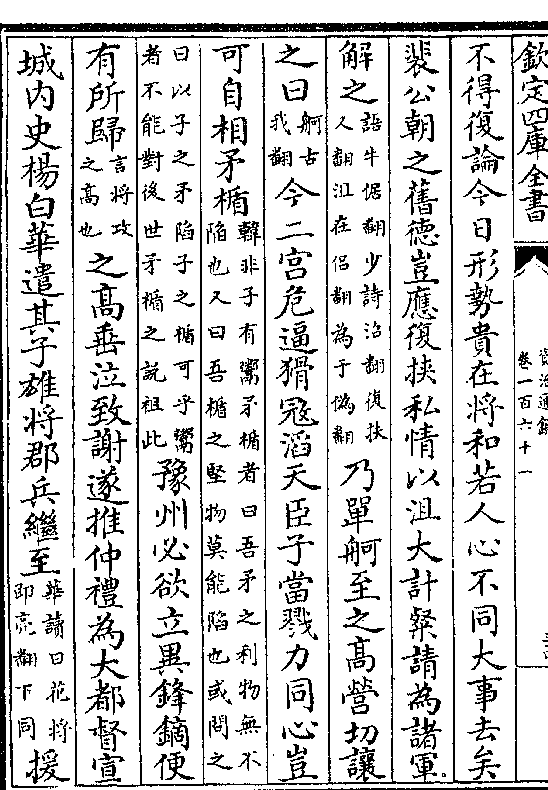 欽定四庫全書
資治通鑑
卷一百六十一
不得復論今日形勢貴在將和若人心不同大事去矣
裴公朝之舊德豈應復挾私情以沮大計粲請為諸軍
解之語牛倨翻少詩沼翻復扶又翻沮在呂翻為于偽翻乃單舸至之高營切讓
之曰舸古我翻今二宮危逼猾寇滔天臣子當戮力同心豈
可自相矛楯韓非子有鬻矛楯者曰吾矛之利物無不陷也又曰吾楯之堅物莫能陷也或問之
曰以子之矛陷子之楯可乎鬻者不能對後世矛楯之説祖此豫州必欲立異鋒鏑便
有所歸言將攻之高也之高垂泣致謝遂推仲禮為大都督宣
城内史楊白華遣其子雄將郡兵繼至華讀曰花將即亮翻下同援